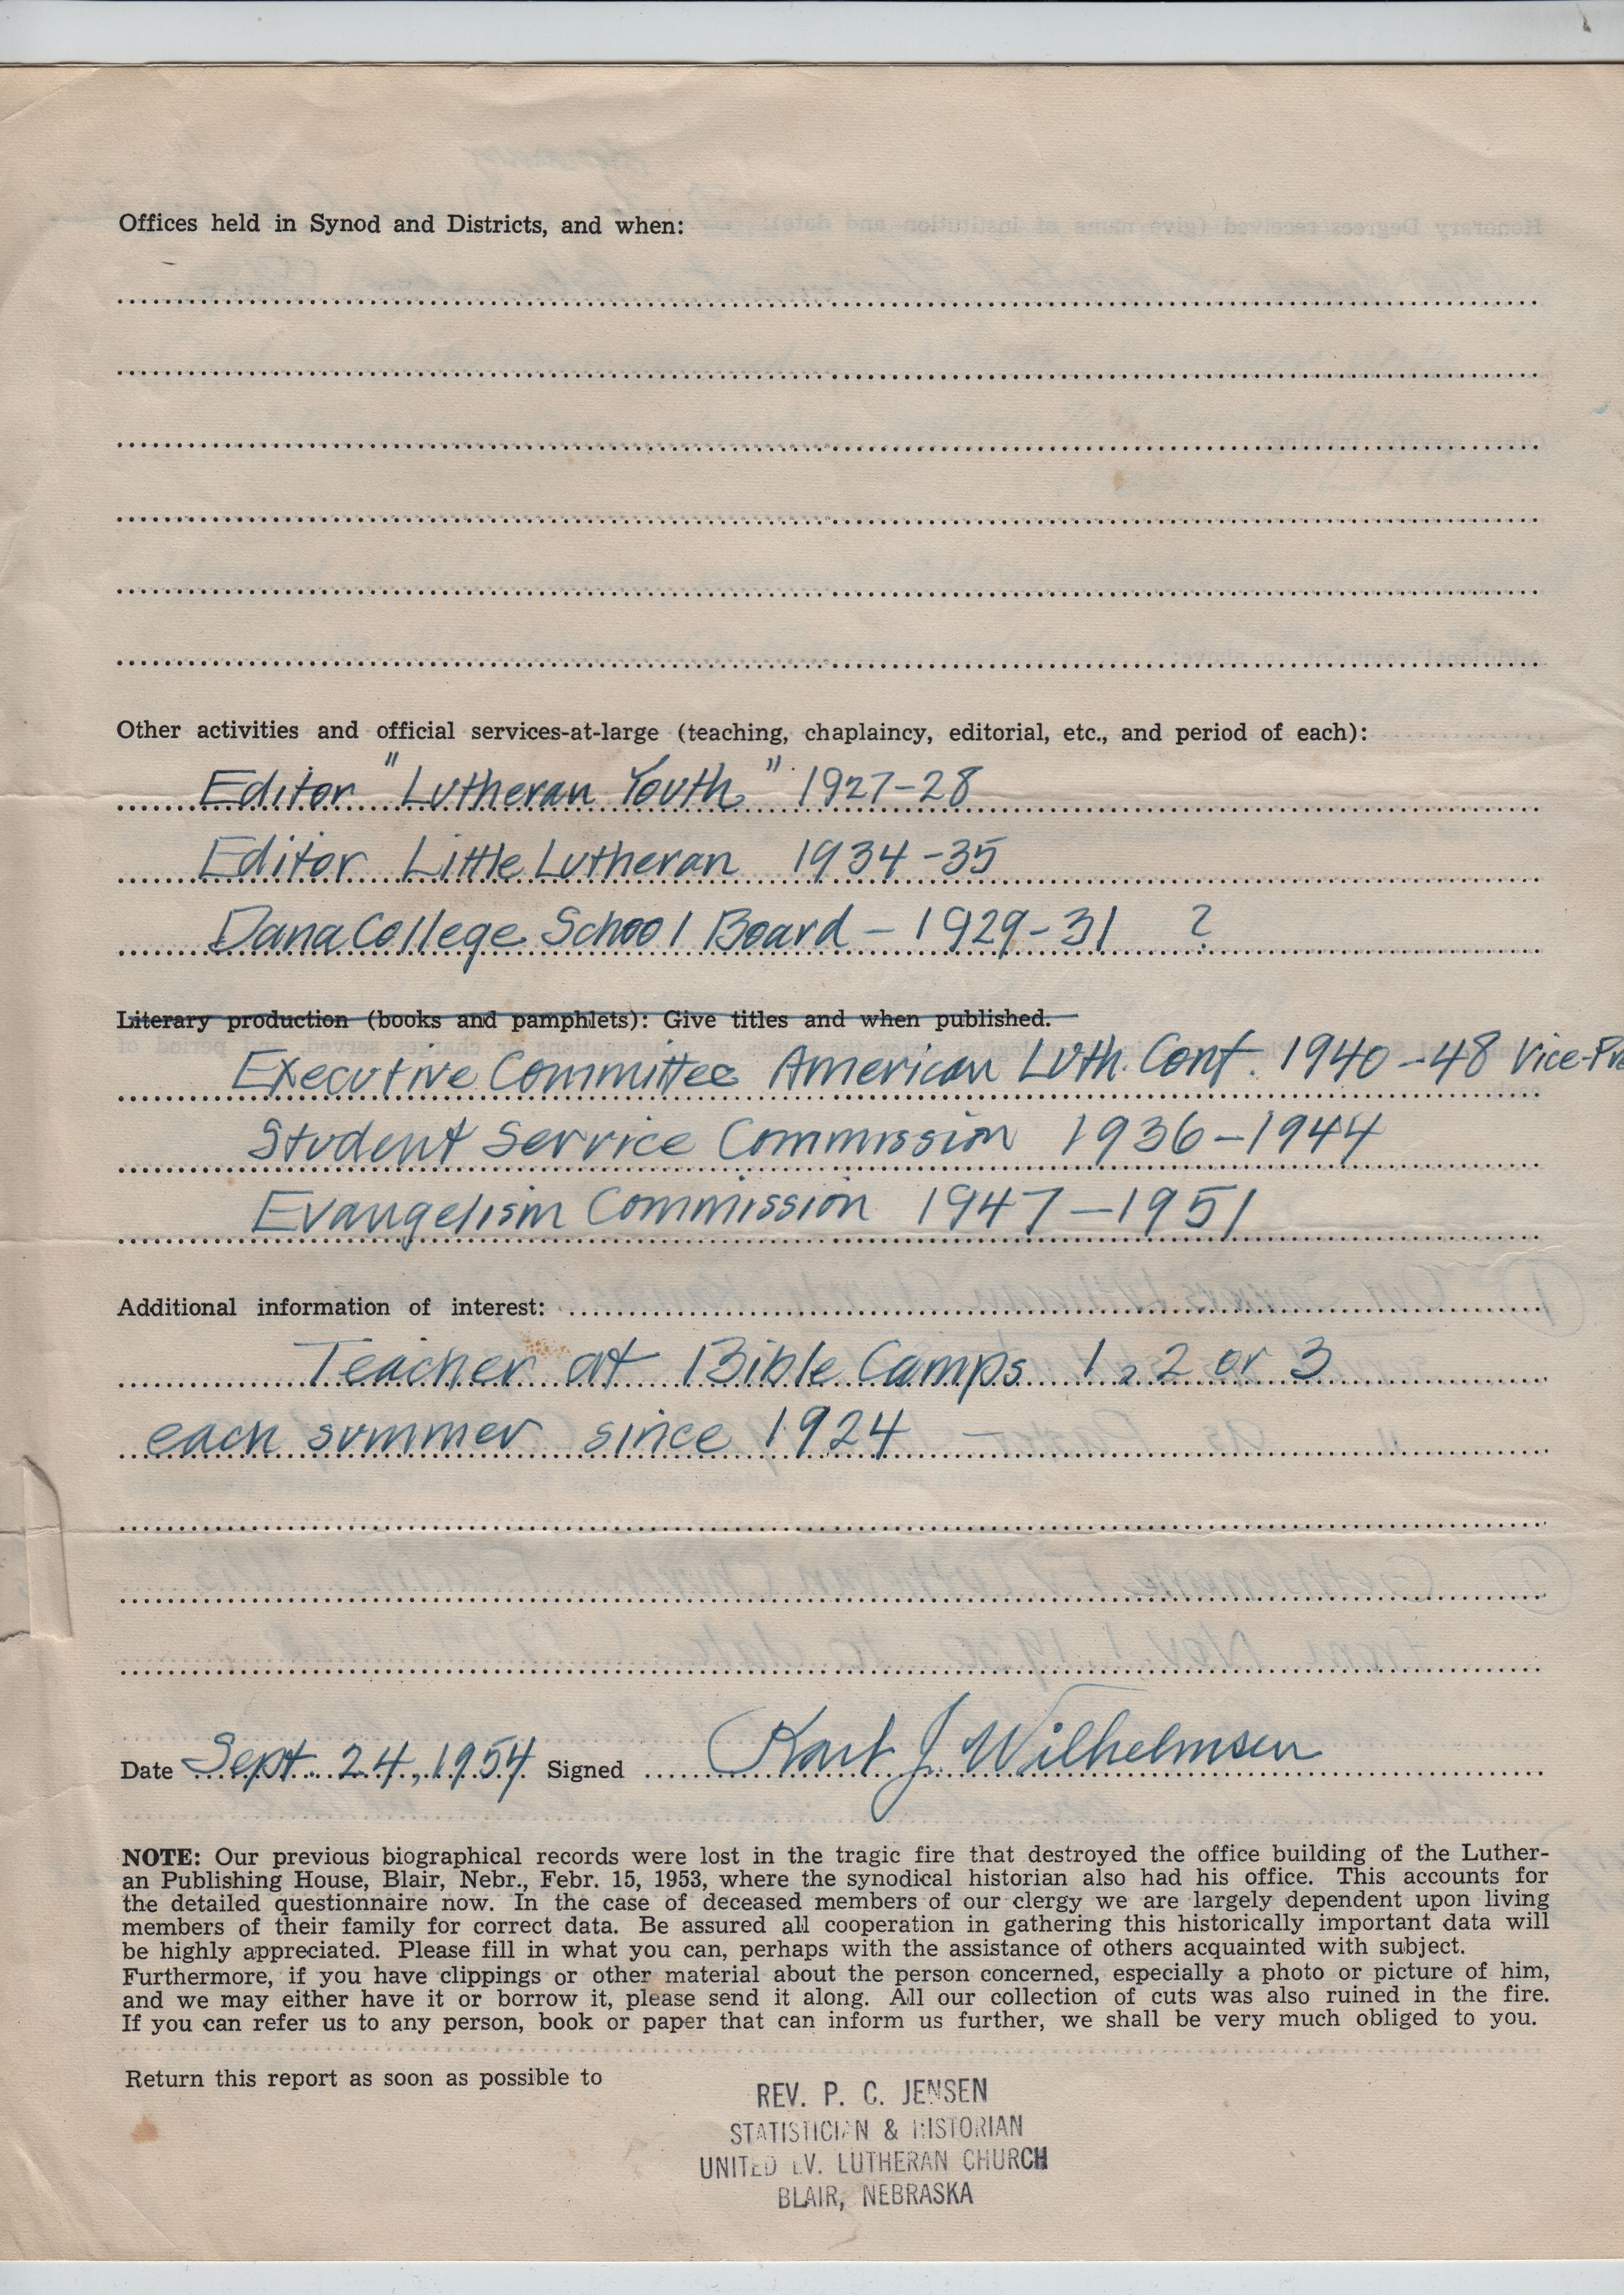 Offices held in Synod and Districts, and when:
Other activities and official services-at-large (teaching, chaplaincy, editorial, etc., and period of each):
Editor "Lutheran Youth" 1927-28
Editor Little Lutheran 1934-35
Dana College School Board - 1929-31 ?
Literary production (books and pamphlets): Give titles and when published.
Executive Committee American Luth. Conf. 1940-48 Vice-Pre
Student Service Commission 1936-1944
Evangelism Commission 1947-1951
Additional information of interest:
Teacher at Bible Camps 1, 2 or 3
each summer since 1924
Date Sept. 24, 1954 Signed Karl J. Wilhelmsen
NOTE: Our previous biographical records were lost in the tragic fire that destroyed the office building of the Luther-
an Publishing House, Blair, Nebr., Febr. 15, 1953, where the synodical historian also had his office. This accounts for
the detailed questionnaire now. In the case of deceased members of our clergy we are largely dependent upon living
members of their family for correct data. Be assured all cooperation in gathering this historically important data will
be highly appreciated. Please fill in what you can, perhaps with the assistance of others acquainted with subject.
Furthermore, if you have clippings or other material about the person concerned, especially a photo or picture of him,
and we may either have it or borrow it, please send it along. All our collection of cuts was also ruined in the fire.
If you can refer us to any person, book or paper that can inform us further, we shall be very much obliged to you.
Return this report as soon as possible to
REV. P. C. JENSEN
STATISTICIAN & HISTORIAN
UNITED EV. LUTHERAN CHURCH
BLAIR, NEBRASKA